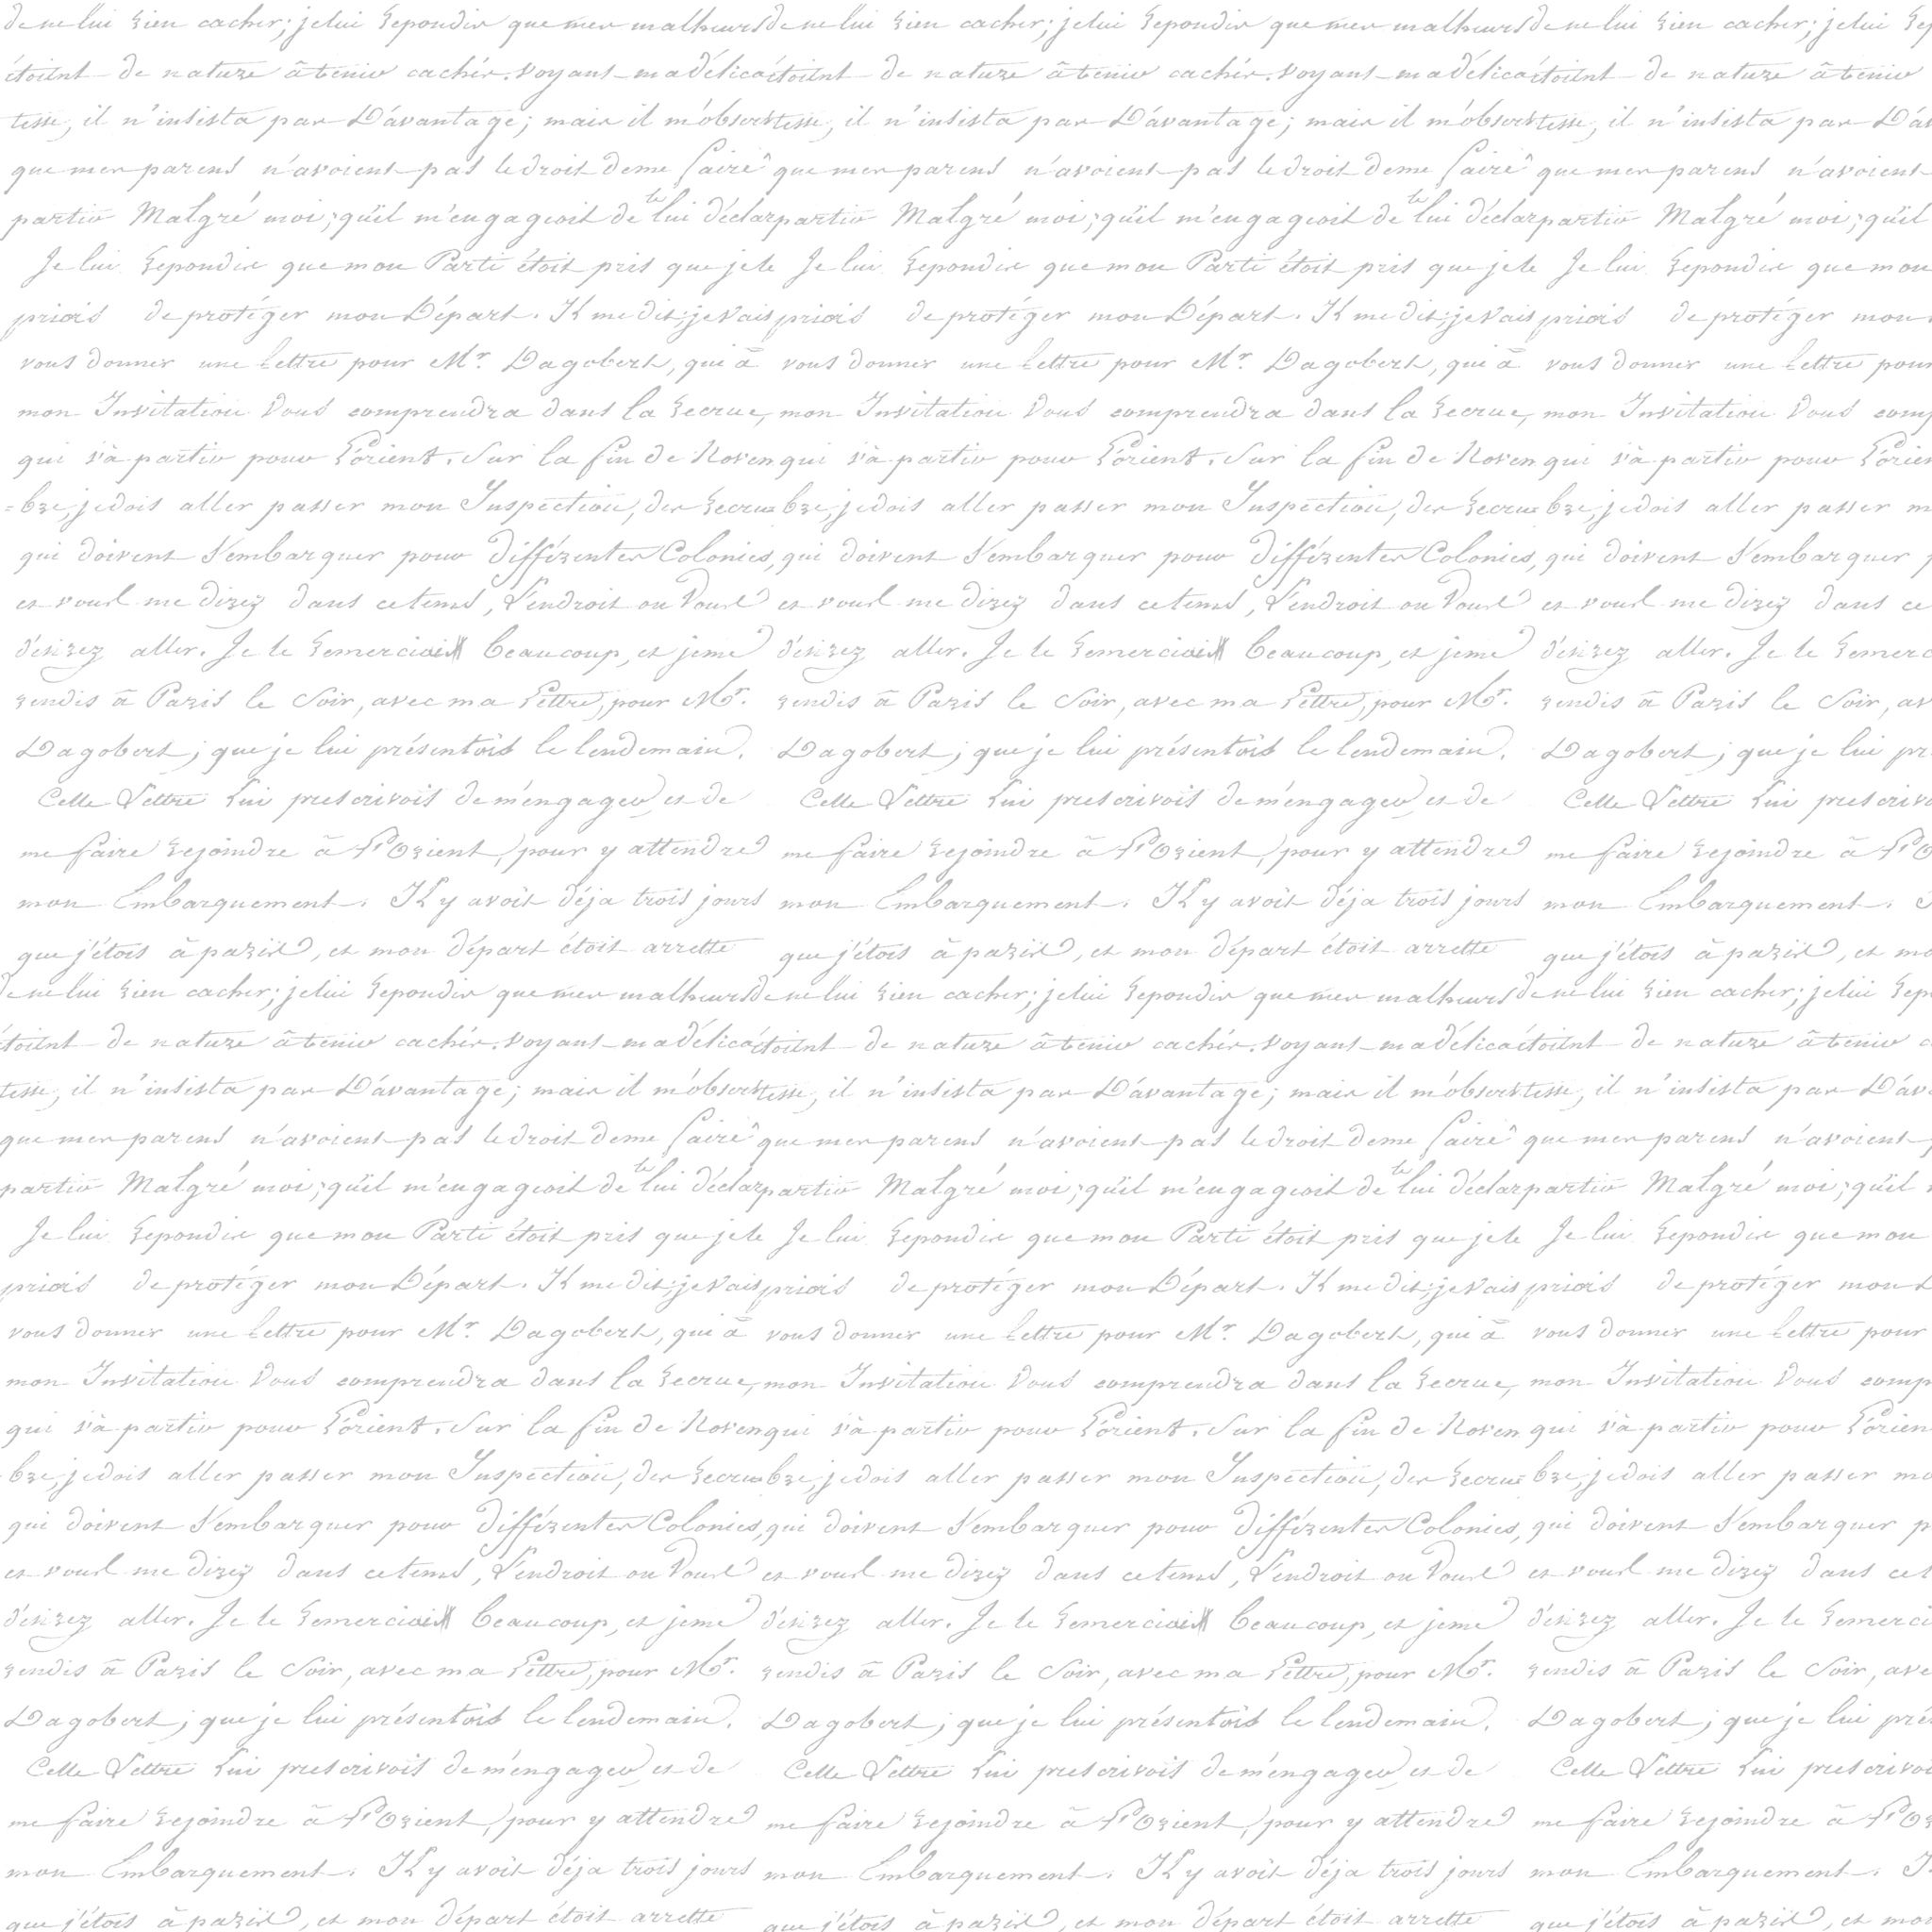 de ne lui rien cacher; je lui repondis que mes malheurs de ne lui rien cacher; je lui repondis que mes malheurs de ne lui rien cacher; je lui rep
étoient de nature à tenir cachés. voyant ma délica étoient de nature à tenir cachés. voyant ma délica étoient de nature à tenir
tesse, il n'insista pas D'avantage; mais il m'observ tesse, il n'insista pas D'avantage; mais il m'observ tesse, il n'insista pas D'av
que mes parens n'avoient pas le droit de me faire que mes parens n'avoient pas le droit de me faire que mes parens n'avoient
partir Malgré moi; qu'il m'engageoit de le lui déclar partir Malgré moi; qu'il m'engageoit de le lui déclar partir Malgré moi; qu'il
Je lui repondis que mon Parti étoit pris que je le Je lui repondis que mon Parti étoit pris que je le Je lui repondis que mon
priois de protéger mon Départ. Il me dit; je vais priois de protéger mon Départ. Il me dit; je vais priois de protéger mon
vous donner une Lettre pour Mr. Dagobert, qui à vous donner une Lettre pour Mr. Dagobert, qui à vous donner une Lettre pour
mon Invitation vous comprendra dans la recrue, mon Invitation vous comprendra dans la recrue, mon Invitation vous comp
qui va partir pour L'orient. Sur la fin de Novem qui va partir pour L'orient. Sur la fin de Novem qui va partir pour L'orien
=bre, je dois aller passer mon Inspection, des recrues bre, je dois aller passer mon Inspection, des recrues bre, je dois aller passer m
qui doivent s'embarquer pour différentes Colonies, qui doivent s'embarquer pour différentes Colonies, qui doivent s'embarquer
et vous me direz dans ce tems, L'endroit ou vous et vous me direz dans ce tems, L'endroit ou vous et vous me direz dans ce
désirez aller. Je le remerciais beaucoup, et je me désirez aller. Je le remerciais beaucoup, et je me désirez aller. Je le remerc
rendis à Paris le Soir, avec ma Lettre, pour Mr. rendis à Paris le Soir, avec ma Lettre, pour Mr. rendis à Paris le Soir, av
Dagobert; que je lui présentois le lendemain. Dagobert; que je lui présentois le lendemain. Dagobert; que je lui pr
Cette Lettre lui prescrivoit de m'engager et de Cette Lettre lui prescrivoit de m'engager et de Cette Lettre lui prescriv
me faire rejoindre à L'Orient, pour y attendre me faire rejoindre à L'Orient, pour y attendre me faire rejoindre à L'O
mon Embarquement. Il y avoit déja trois jours mon Embarquement. Il y avoit déja trois jours mon Embarquement.
que j'étois à paris, et mon départ étoit arretté que j'étois à paris, et mon départ étoit arretté que j'étois à paris, et mo
de ne lui rien cacher; je lui repondis que mes malheurs de ne lui rien cacher; je lui repondis que mes malheurs de ne lui rien cacher; je lui rep
étoient de nature à tenir cachés. voyant ma délica étoient de nature à tenir cachés. voyant ma délica étoient de nature à tenir c
tesse, il n'insista pas D'avantage; mais il m'observ tesse, il n'insista pas D'avantage; mais il m'observ tesse, il n'insista pas D'av
que mes parens n'avoient pas le droit de me faire que mes parens n'avoient pas le droit de me faire que mes parens n'avoient
partir Malgré moi; qu'il m'engageoit de le lui déclar partir Malgré moi; qu'il m'engageoit de le lui déclar partir Malgré moi; qu'il
Je lui repondis que mon Parti étoit pris que je le Je lui repondis que mon Parti étoit pris que je le Je lui repondis que mon
priois de protéger mon Départ. Il me dit; je vais priois de protéger mon Départ. Il me dit; je vais priois de protéger mon D
vous donner une Lettre pour Mr. Dagobert, qui à vous donner une Lettre pour Mr. Dagobert, qui à vous donner une Lettre pour
mon Invitation vous comprendra dans la recrue, mon Invitation vous comprendra dans la recrue, mon Invitation vous comp
qui va partir pour L'orient. Sur la fin de Novem qui va partir pour L'orient. Sur la fin de Novem qui va partir pour L'orien
bre, je dois aller passer mon Inspection, des recrues bre, je dois aller passer mon Inspection, des recrues bre, je dois aller passer mo
qui doivent s'embarquer pour différentes Colonies, qui doivent s'embarquer pour différentes Colonies, qui doivent s'embarquer p
et vous me direz dans ce tems, L'endroit ou vous et vous me direz dans ce tems, L'endroit ou vous et vous me direz dans ce t
désirez aller. Je le remerciais beaucoup, et je me désirez aller. Je le remerciais beaucoup, et je me désirez aller. Je le remerci
rendis à Paris le Soir, avec ma Lettre, pour Mr. rendis à Paris le Soir, avec ma Lettre, pour Mr. rendis à Paris le Soir, ave
Dagobert; que je lui présentois le lendemain. Dagobert; que je lui présentois le lendemain. Dagobert; que je lui pré
Cette Lettre lui prescrivoit de m'engager et de Cette Lettre lui prescrivoit de m'engager et de Cette Lettre lui prescrivoi
me faire rejoindre à L'Orient, pour y attendre me faire rejoindre à L'Orient, pour y attendre me faire rejoindre à L'Or
mon Embarquement. Il y avoit déja trois jours mon Embarquement. Il y avoit déja trois jours mon Embarquement. I
que j'étois à paris, et mon départ étoit arretté que j'étois à paris, et mon départ étoit arretté que j'étois à paris, et mon